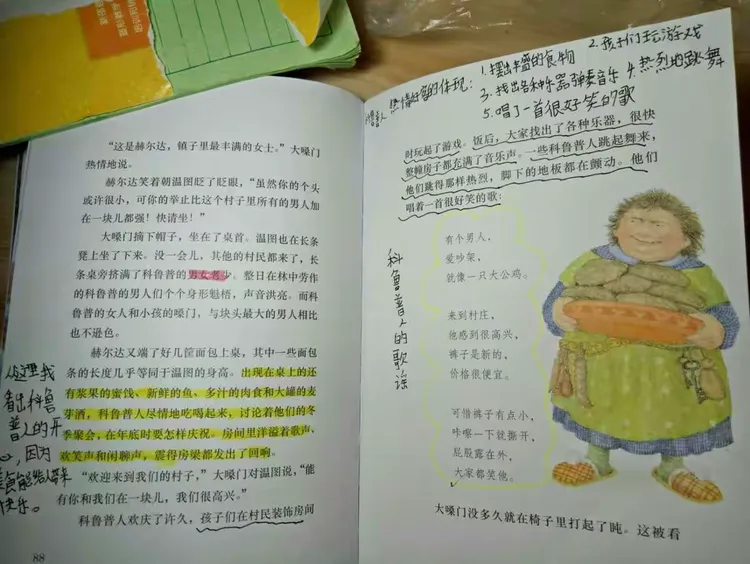 “这是赫尔达，镇子里最丰满的女士。”大嗓门
热情地说。
赫尔达笑着朝温图眨了眨眼，“虽然你的个头
或许很小，可你的举止比这个村子里所有的男人加
在一块儿都强！快请坐！”
大嗓门摘下帽子，坐在了桌首。温图也在长条
凳上坐了下来。没一会儿，其他的村民都来了，长
条桌旁挤满了科鲁普的男女老少。整日在林中劳作
的科鲁普的男人们个个身形魁梧，声音洪亮。而科
鲁普的女人和小孩的嗓门，与块头最大的男人相比
也不逊色。
赫尔达又端了好几筐面包上桌，其中一些面包
条的长度几乎等同于温图的身高。出现在桌上的还
有浆果的蜜饯、新鲜的鱼、多汁的肉食和大罐的麦
芽酒，科鲁普人尽情地吃喝起来，讨论着他们的冬
季聚会，在年底时要怎样庆祝。房间里洋溢着歌声、
欢笑声和闲聊声，震得房梁都发出了回响。
“欢迎来到我们的村子，”大嗓门对温图说，“能
有你和我们在一块儿，我们很高兴。”
科鲁普人欢庆了许久，孩子们在村民装饰房间
88
从这里我
看出科鲁
普人的开
心，因为
美食能给人带来
快乐。
热情好客的体现：1.摆出丰富的食物 2.孩子们玩游戏
3.找出各种乐器弹奏音乐 4.热烈地跳舞
5.唱了一首很好笑的歌
时玩起了游戏。饭后，大家找出了各种乐器，很快
整幢房子都充满了音乐声。一些科鲁普人跳起舞来，
他们跳得那样热烈，脚下的地板都在颤动。他们
唱着一首很好笑的歌：
科鲁普人的歌谣
有个男人，
爱吵架，
就像一只大公鸡。
来到村庄，
他感到很高兴，
裤子是新的，
价格很便宜。
可惜裤子有点小，
咔嚓一下就撕开，
屁股露在外，
大家都笑他。
大嗓门没多久就在椅子里打起了盹。这被看